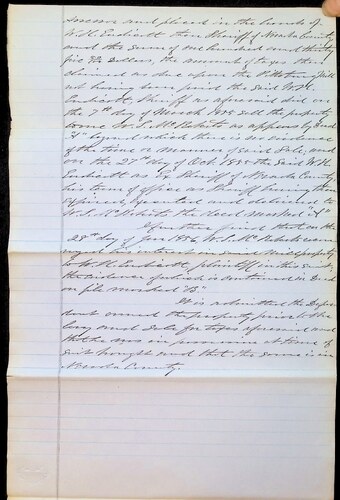 and placed in the hands of
W.H. Endicott then Sheriff of Nevada County
and the sum of one hundred and thirty
five Dollars, the amount of taxes then
claimed as due upon the
not having been paid the said W.H.
Endicott, Sheriff as aforesaid did on
the 7th day of March 1855 sell the property
to one W.S. McRoberts as appears by Deed
"A" beyond which there is no evidence
of the time or manner of said Sale, and
on the 27th day of Oct 1855 the said W.H.
Endicott as Ex Sheriff of Nevada County
his term of office as Sheriff having then
expired, executed and delivered to
W.S. McRoberts the deed marked "A"
I further find that on the
28th day of Jan 1856 W.S. McRoberts
his interest in said property
to W.H. Endicott plaintiff in this suit,
the evidence of which is contained in Deed
on file marked "B"
It is admitted the Defen
dant owned the property prior to the
Sale for taxes aforesaid and
that he was in possession at time of
suit brought and that the same is in
Nevada County.